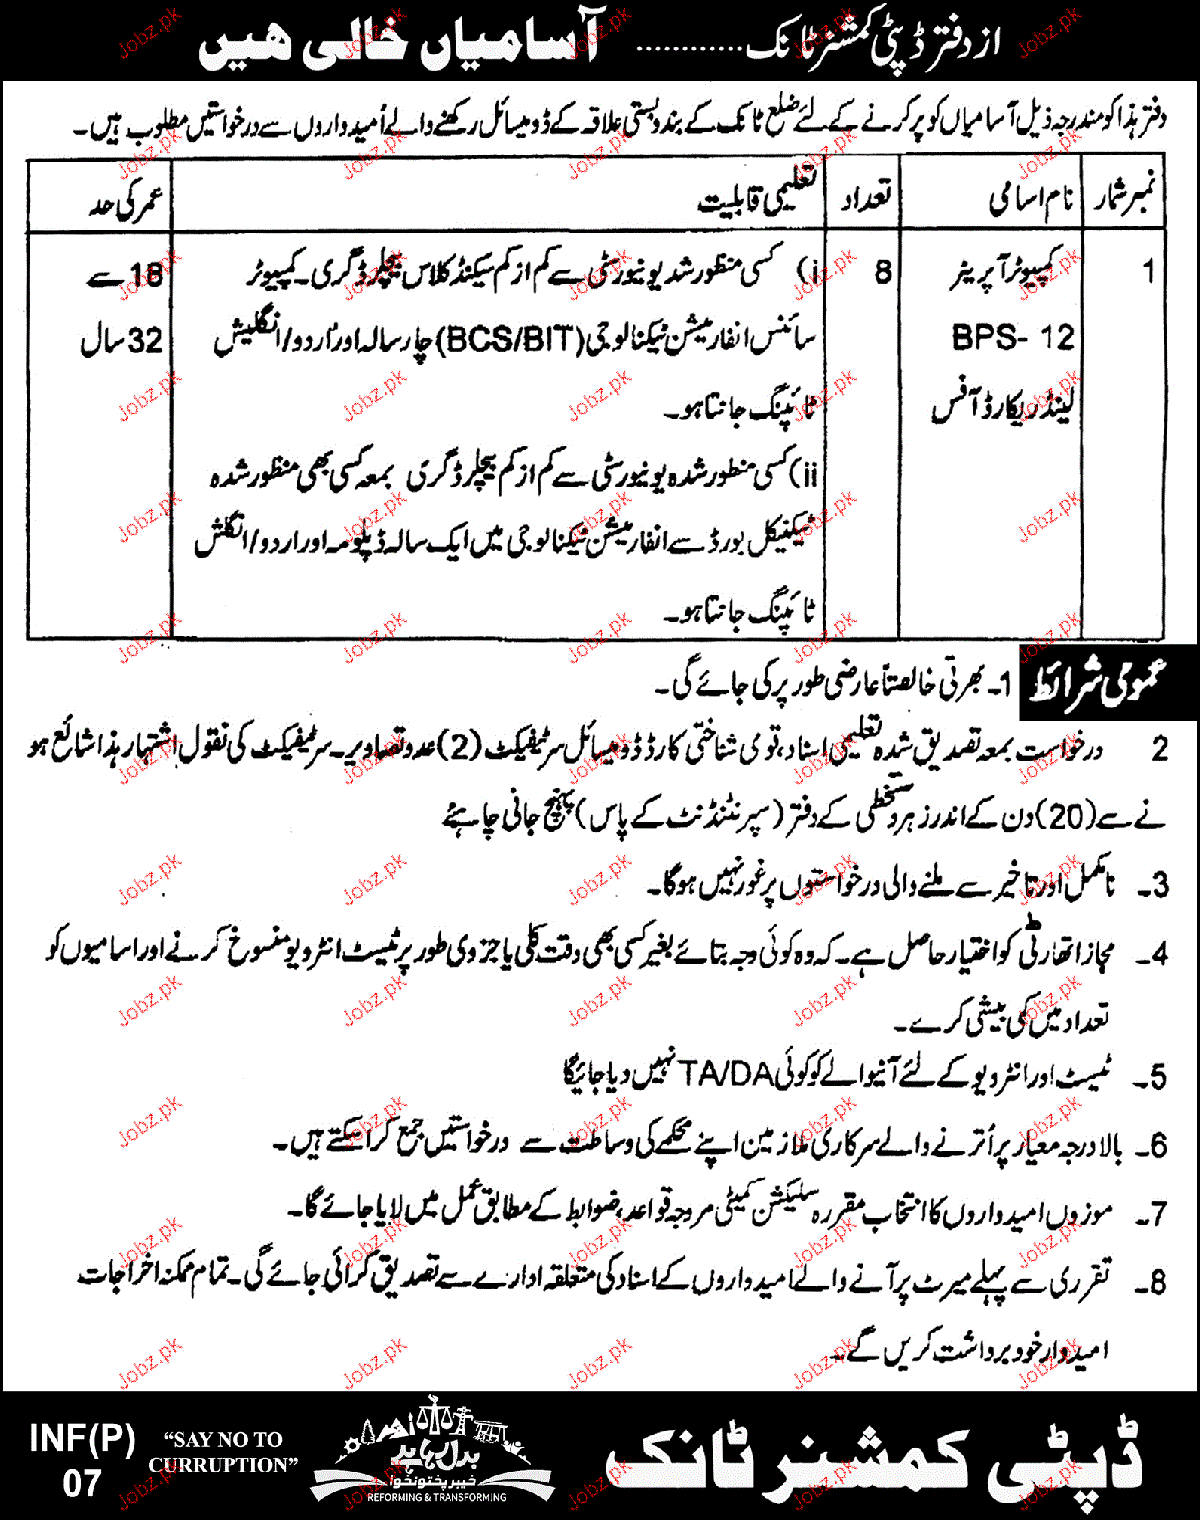 از دفتر ڈپٹی کمشنر ٹانک ............ آسامیاں خالی ھیں
دفتر ہذا کو مندرجہ ذیل آسامیاں کو پر کرنے کے لئے ضلع ٹانک کے بندوبستی علاقہ کے ڈومیسائل رکھنے والے اُمیدواروں سے درخواستیں مطلوب ہیں۔
نمبر شمار نام اسامی تعداد تعلیمی قابلیت عمر کی حد
1 کمپیوٹر آپریٹر 8 i) کسی منظور شد یونیورسٹی سے کم از کم سیکنڈ کلاس بیچلر ڈگری۔ کمپیوٹر 18 سے
BPS- 12 سائنس انفارمیشن ٹیکنالوجی (BCS/BIT) چار سالہ اور اُردو/انگلیش 32 سال
لینڈ ریکارڈ آفس ٹائپنگ جانتا ہو۔
ii) کسی منطور شدہ یونیورسٹی سے کم از کم بیچلر ڈگری بمعہ کسی بھی منظور شدہ
ٹیکنیکل بورڈ سے انفارمیشن ٹیکنالوجی میں ایک سالہ ڈپلومہ اور اردو/انگلش
ٹائپنگ جانتا ہو۔
عمومی شرائط 1۔ بھرتی خالصتاً عارضی طور پر کی جائے گی۔
2 درخواست بمعہ تصدیق شدہ تعلیمی اسناد، قومی شناختی کارڈ ڈومیسائل سرٹیفیکٹ (2) عدد تصاویر۔ سرٹیفیکٹ کی نقول اشتہار ہذا شائع ہو
نے سے (20) دن کے اندر زہر دستخطی کے دفتر (سپرنٹنڈنٹ کے پاس) پہنچ جانی چاہئے
3۔ نامکمل اور تاخیر سے ملنے والی درخواستوں پر غور نہیں ہوگا۔
4۔ مجاز اتھارٹی کو اختیار حاصل ہے۔ کہ وہ کوئی وجہ بتائے بغیر کسی بھی وقت کلی یا جزوی طور پر ٹیسٹ انٹرویو منسوخ کرنے اور اسامیوں کو
تعداد میں کمی بیشی کرے۔
5۔ ٹیسٹ اور انٹرویو کے لئے آنیوالے کو کوئی TA/DA نہیں دیا جائیگا
6۔ بالا درجہ معیار پر اُترنے والے سرکاری ملازمین اپنے محکمے کی وساطت سے درخواستیں جمع کراسکتے ہیں۔
7۔ موزوں امیدواروں کا انتخاب مقررہ سلیکشن کمیٹی مروجہ قواعد، ضوابط کے مطابق عمل میں لایا جائے گا۔
8۔ تقرری سے پہلے میرٹ پر آنے والے امیدواروں کے اسناد کی متعلقہ ادارے سے تصدیق کرائی جائے گی۔ تمام ممکنہ اخراجات
امیدوار خود برداشت کریں گے۔
ڈپٹی کمشنر ٹانک
بدل رہا ہے
خیبر پختونخوا
REFORMING & TRANSFORMING
“SAY NO TO
CURRUPTION”
INF(P)
07
Jobz.pk